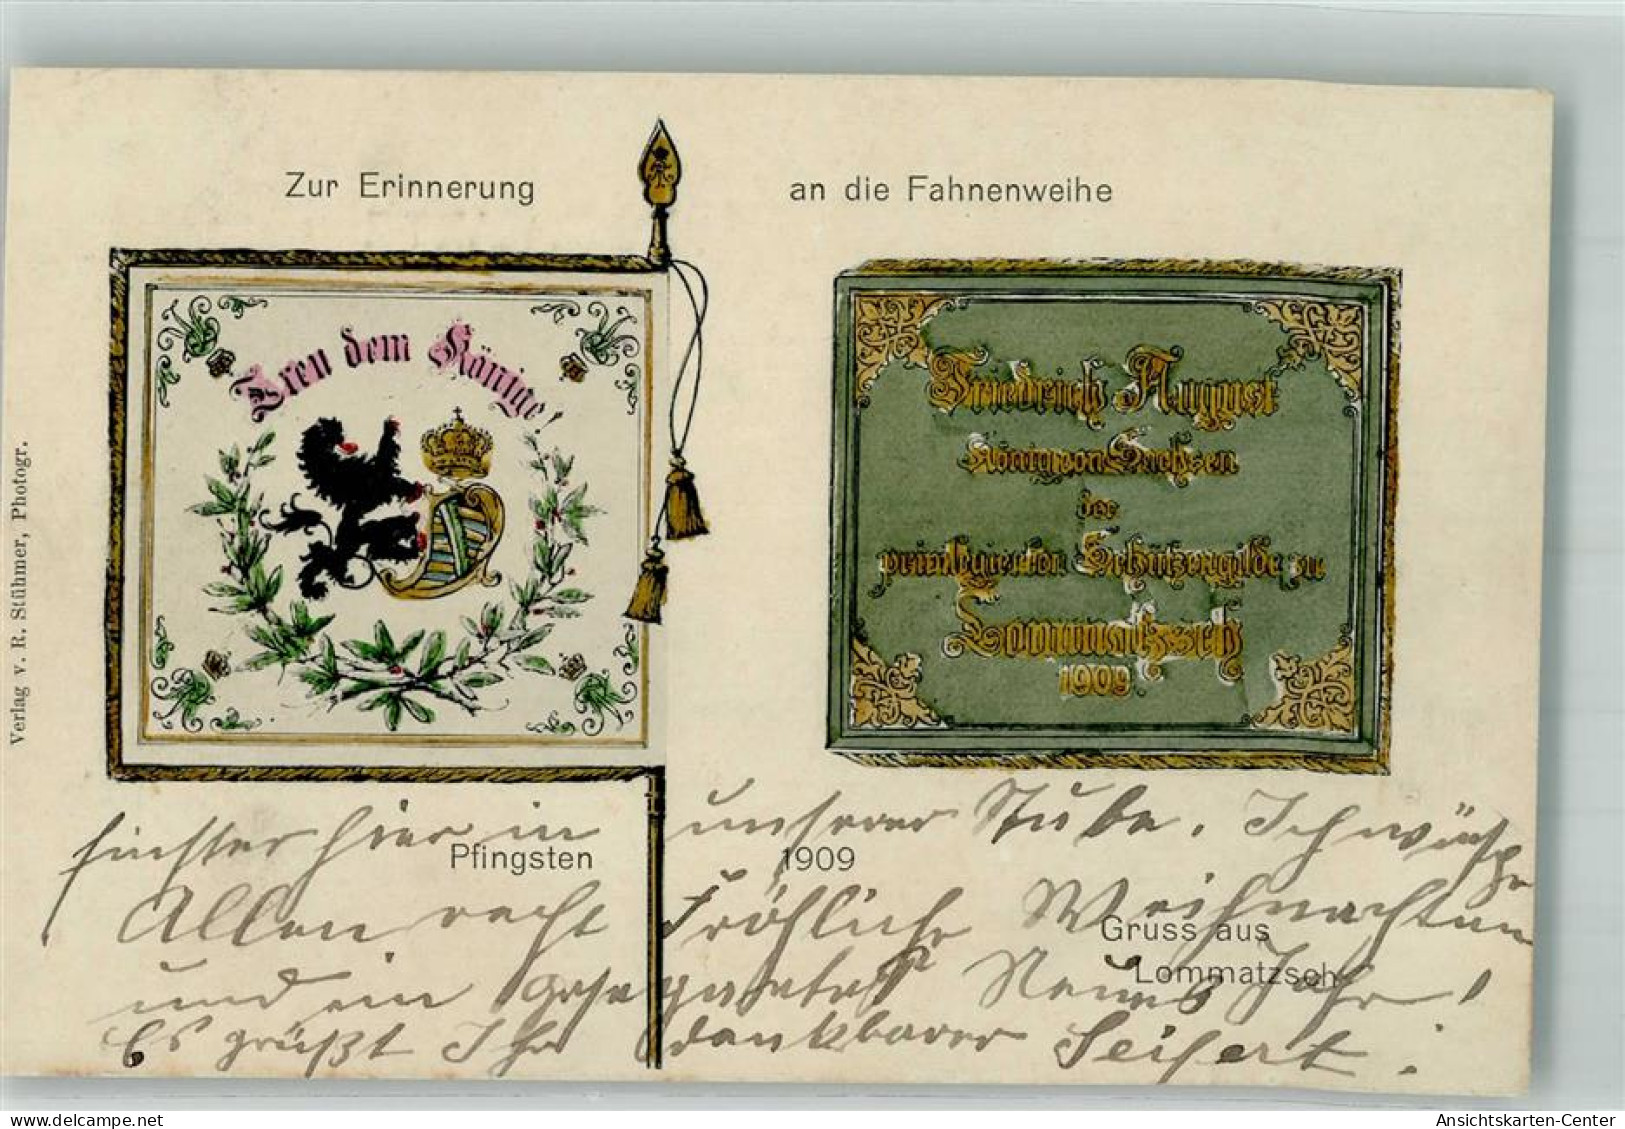 Zur Erinnerung an die Fahnenweihe
Treu dem Könige!
Friedrich August
König von Sachsen
der
privilegierten Schützengilde zu
Lommatzsch
1909.
Verlag v. R. Stühmer, Photogr.
Pfingsten 1909
Gruss aus
Lommatzsch
finster hier in unserer Stube. Ich wünsche
Allen recht Fröhliche Weihnachten
und ein gesegnetes Neues Jahr!
Es grüßt Ihr dankbarer Seifert.
Ansichtskarten-Center